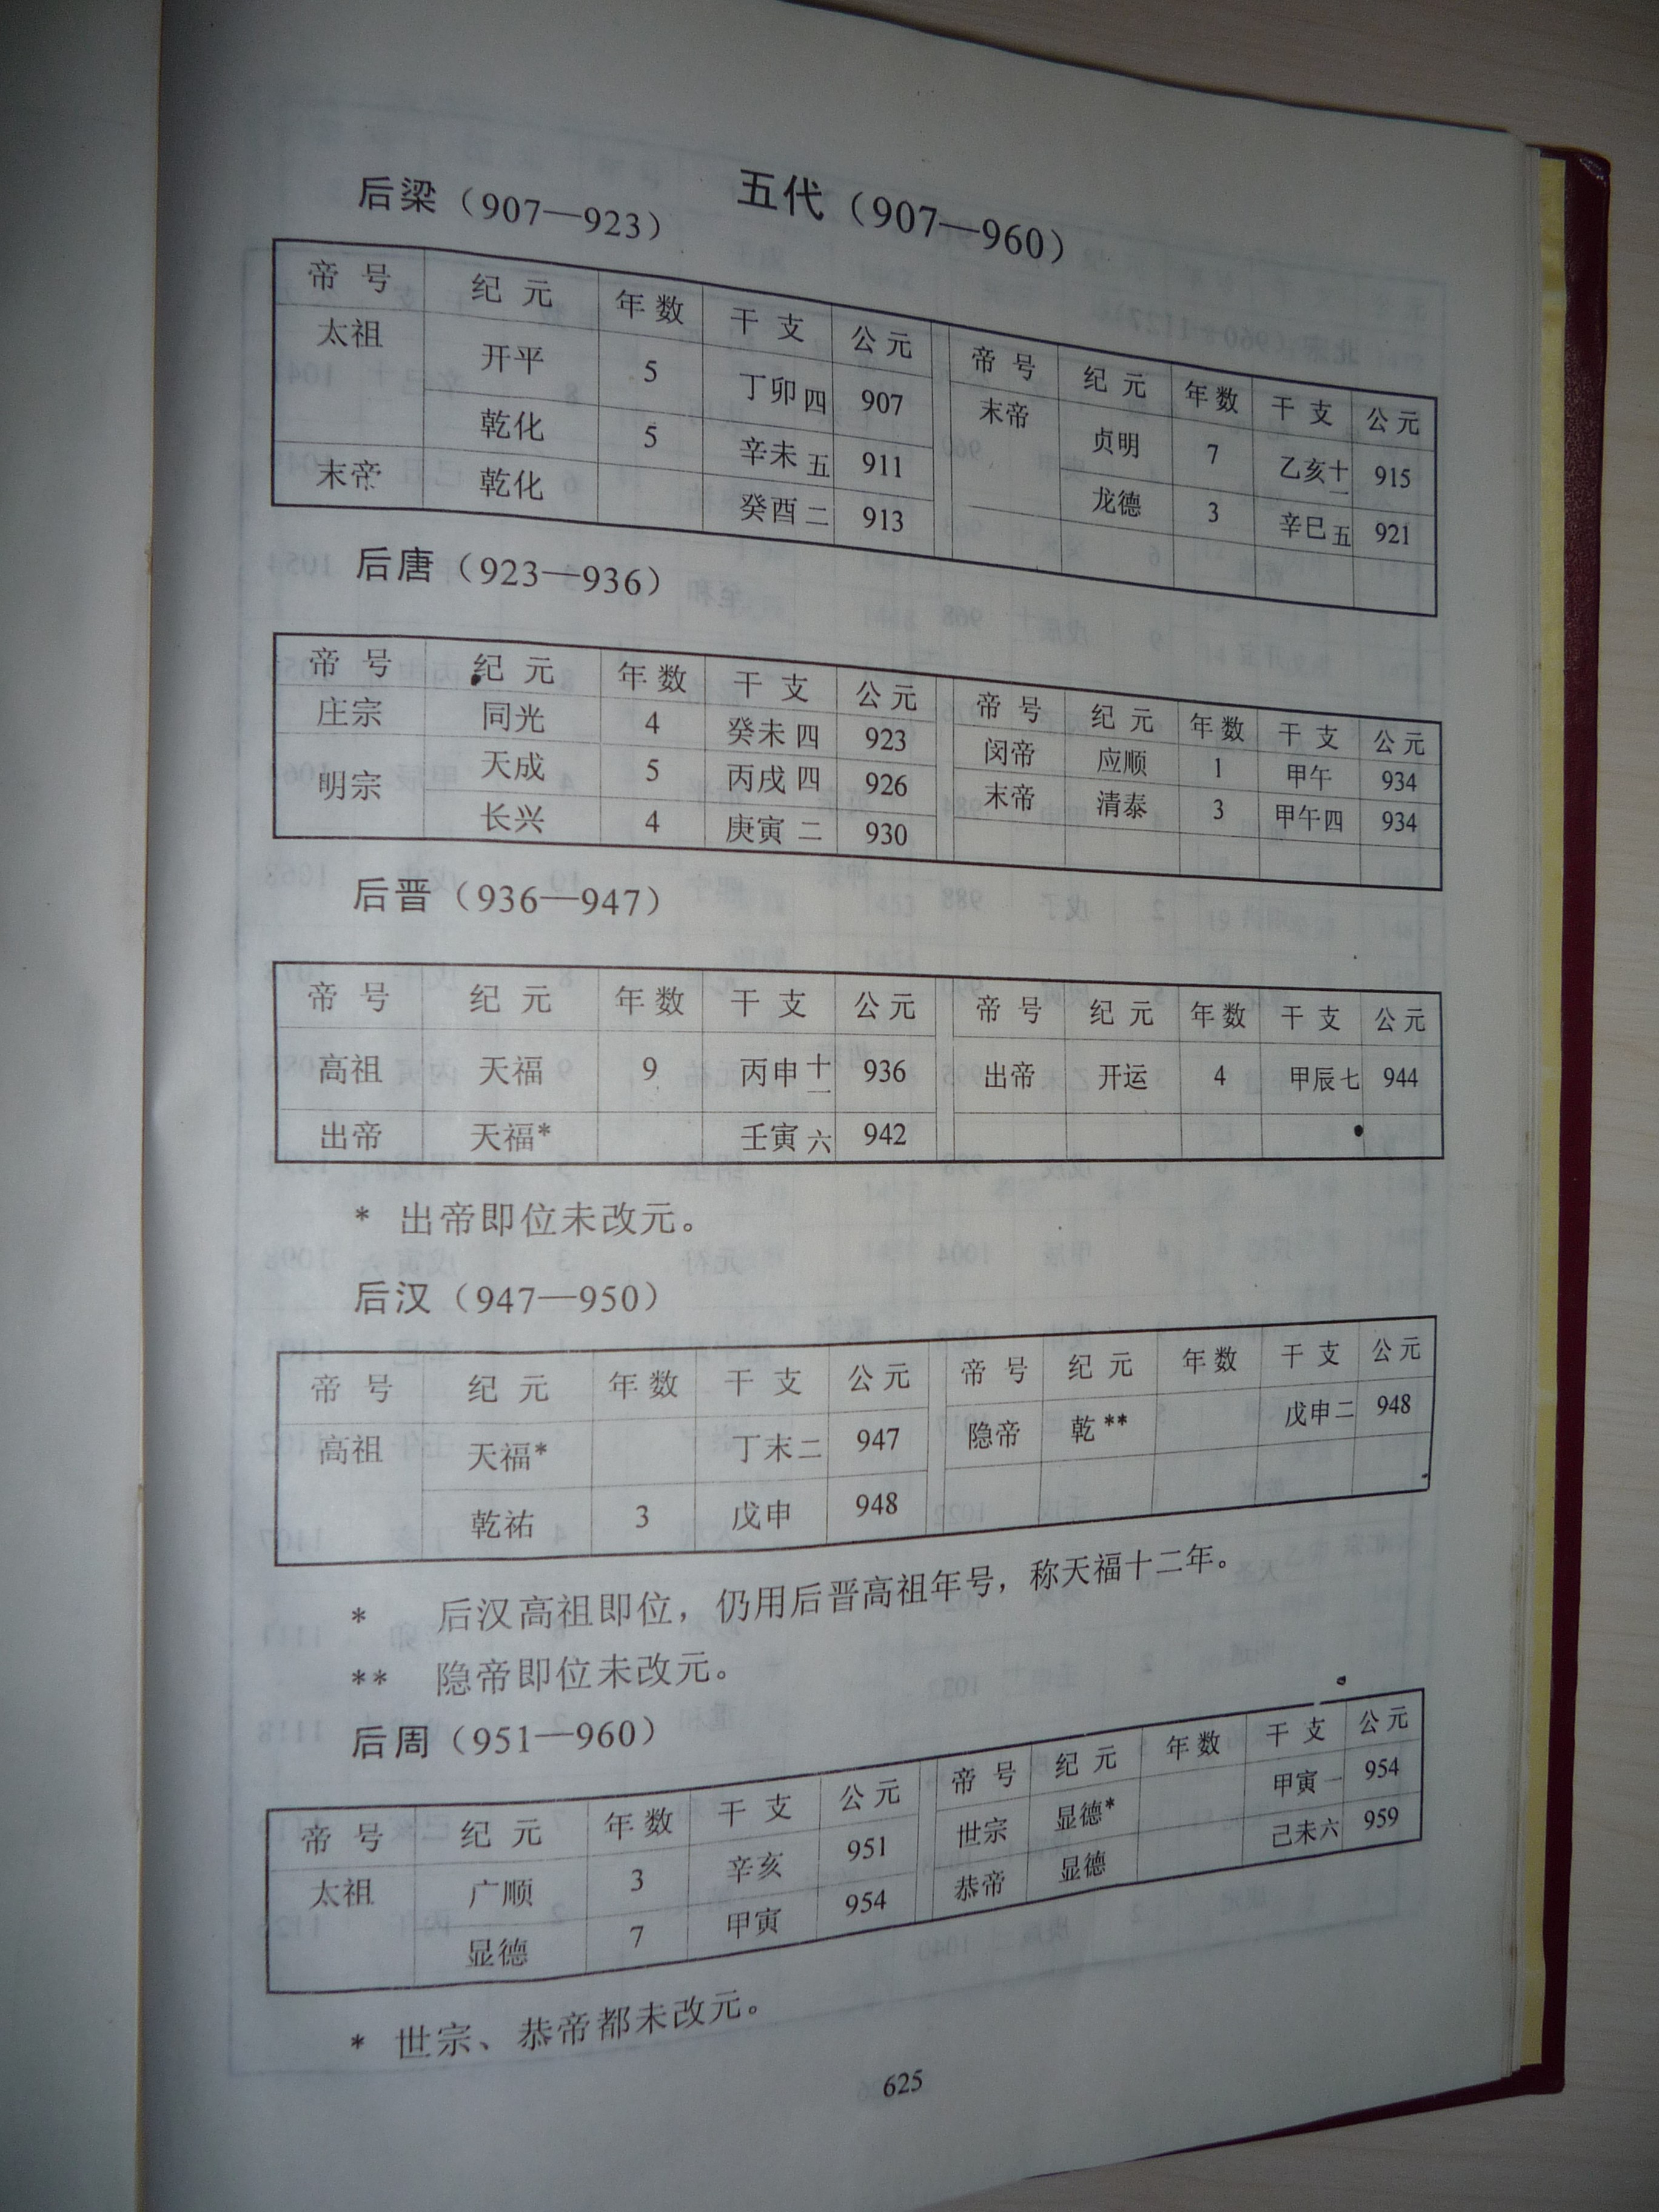 五代（907—960）
后梁（907—923）
帝号 纪元 年数 干支 公元 帝号 纪元 年数 干支 公元
太祖 开平 5 丁卯四 907 末帝 贞明 7 乙亥十一 915
乾化 5 辛未五 911 龙德 3 辛巳五 921
末帝 乾化 癸酉二 913
后唐（923—936）
帝号 纪元 年数 干支 公元 帝号 纪元 年数 干支 公元
庄宗 同光 4 癸未四 923 闵帝 应顺 1 甲午 934
明宗 天成 5 丙戌四 926 末帝 清泰 3 甲午四 934
长兴 4 庚寅二 930
后晋（936—947）
帝号 纪元 年数 干支 公元 帝号 纪元 年数 干支 公元
高祖 天福 9 丙申十一 936 出帝 开运 4 甲辰七 944
出帝 天福* 壬寅六 942
* 出帝即位未改元。
后汉（947—950）
帝号 纪元 年数 干支 公元 帝号 纪元 年数 干支 公元
高祖 天福* 丁末二 947 隐帝 乾** 戊申二 948
乾祐 3 戊申 948
* 后汉高祖即位，仍用后晋高祖年号，称天福十二年。
** 隐帝即位未改元。
后周（951—960）
帝号 纪元 年数 干支 公元 帝号 纪元 年数 干支 公元
太祖 广顺 3 辛亥 951 世宗 显德* 甲寅一 954
显德 7 甲寅 954 恭帝 显德 己未六 959
* 世宗、恭帝都未改元。
625